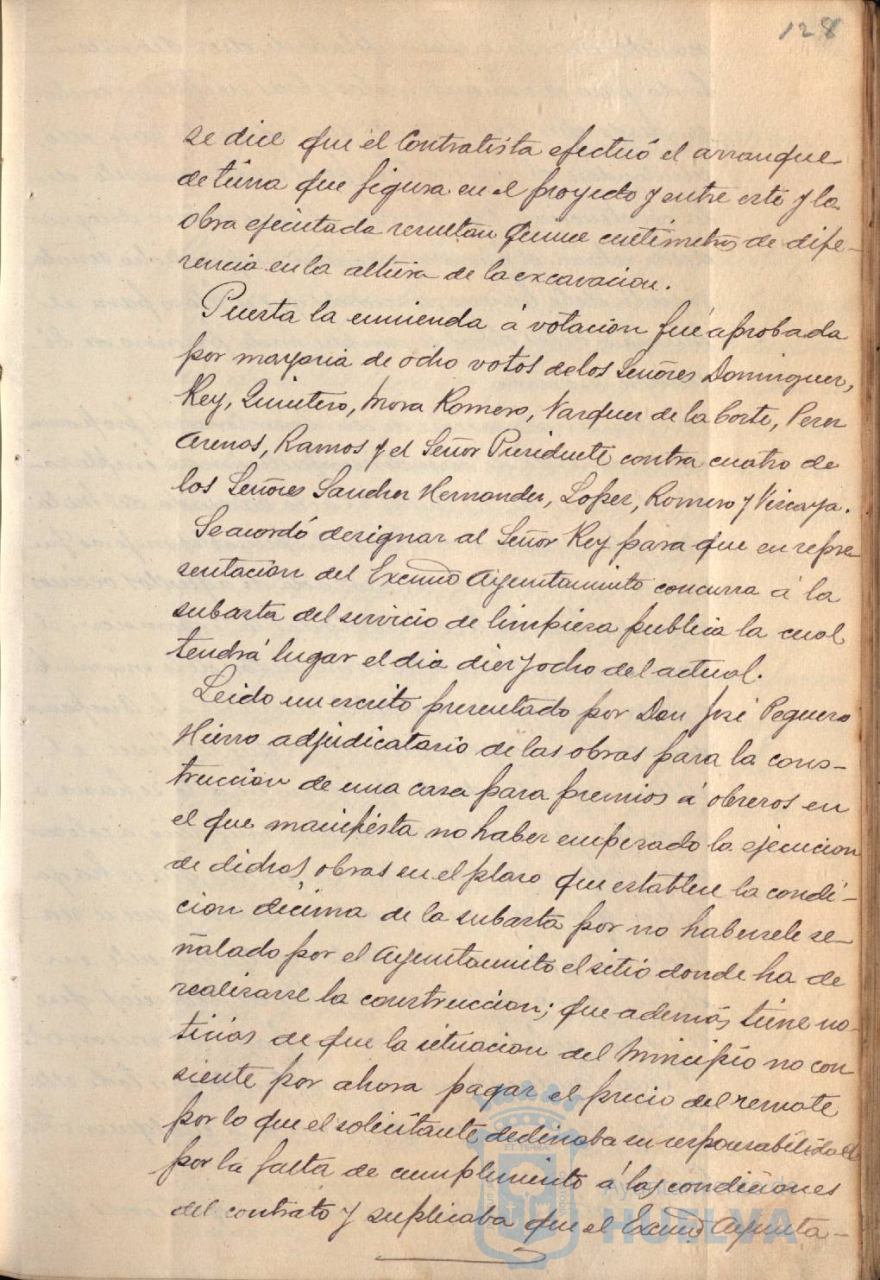 128
se dice que el Contratista efectuó el arranque
de tierra que figura en el proyecto y entre este y la
obra ejecutada resultan quince centímetros de dife-
rencia en la altura de la excavacion.
Puesta la enmienda á votacion fué aprobada
por mayoria de ocho votos de los Señores Dominguez,
Rey, Quintero, Mora Romero, Vazquez de la Corte, Perez
Arenas, Ramos y el Señor Presidente contra cuatro de
los Señores Sanchez Hernandez, Lopez, Romero y Viscaya.
Se acordó designar al Señor Rey para que en repre
sentacion del Excmo Ayuntamiento concurra á la
subasta del servicio de limpieza publica la cual
tendrá lugar el dia diez y ocho del actual.
Leido un escrito presentado por Don José Peguero
Hierro adjudicatario de las obras para la cons-
truccion de una casa para premios á obreros en
el que manifiesta no haber empezado la ejecucion
de dichas obras en el plazo que establece la condi-
cion décima de la subasta por no habersele se-
ñalado por el Ayuntamiento el sitio donde ha de
realizarse la construccion; que además tiene no-
ticias de que la situacion del Municipio no con
siente por ahora pagar el precio del remate
por lo que el solicitante declinaba su responsabilidad
por la falta de cumplimiento á las condiciones
del contrato y suplicaba que el Excmo Ayunta-
HUELVA